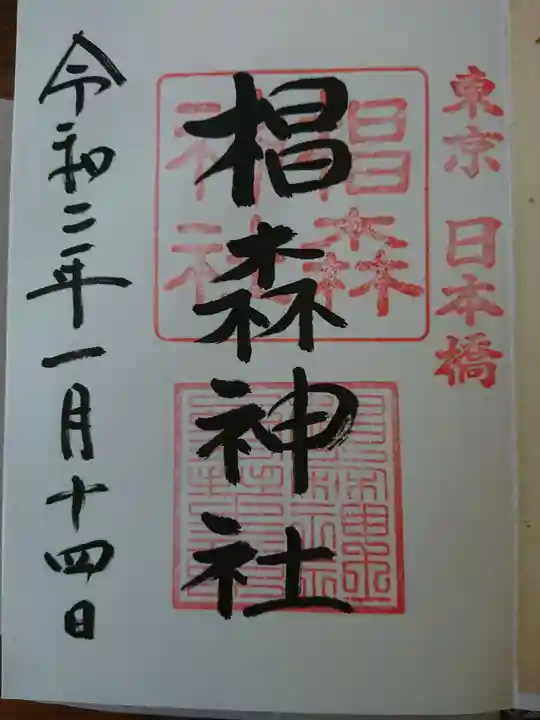 東京 日本橋
椙森神社
椙森
神社
令和二年一月十四日